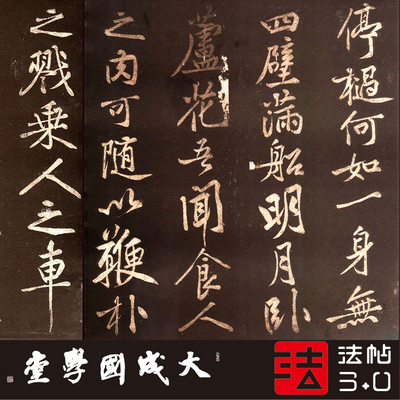 停檛何如一身無
四壁滿船明月卧
蘆花吾聞食人
之肉可随以鞭朴
之戮乘人之車
大成國學堂
法
法帖
3.0